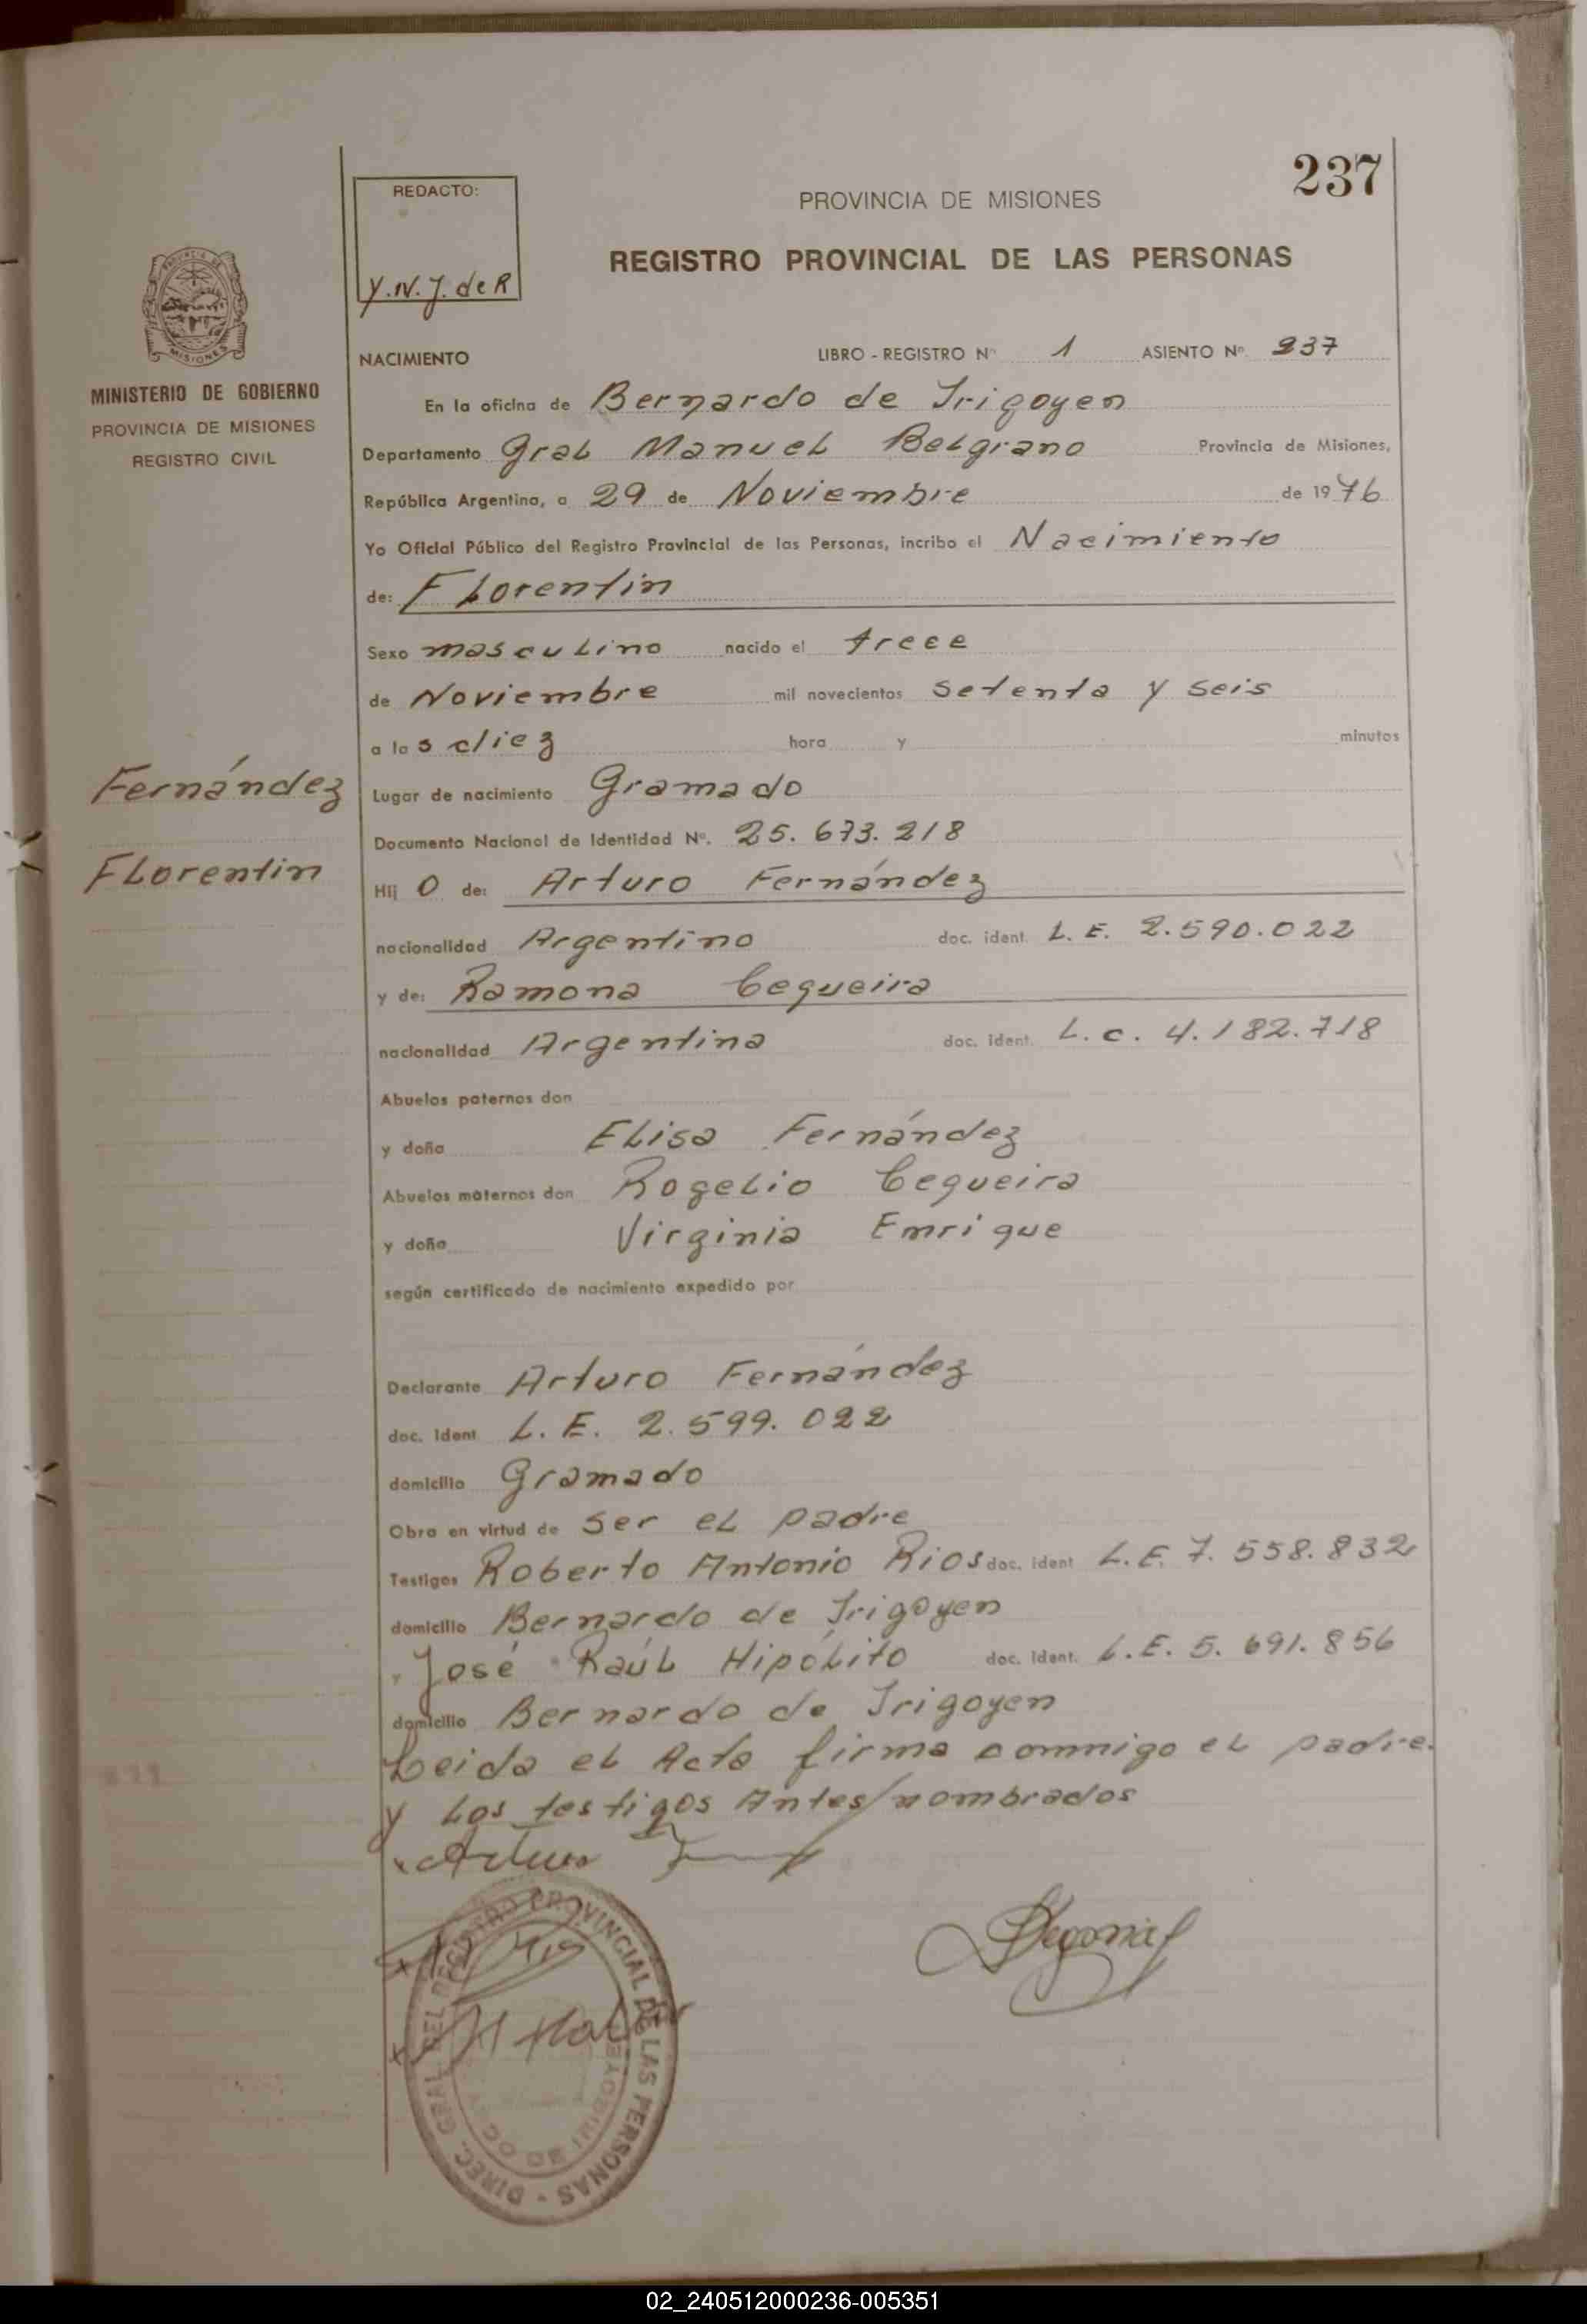 237
REDACTO:
Y.N.J. de R
PROVINCIA DE MISIONES
REGISTRO PROVINCIAL DE LAS PERSONAS
MISIONES
MINISTERIO DE GOBIERNO
PROVINCIA DE MISIONES
REGISTRO CIVIL
NACIMIENTO LIBRO - REGISTRO Nº 1 ASIENTO Nº 237
En la oficina de Bernardo de Irigoyen
Departamento Gral Manuel Belgrano Provincia de Misiones,
República Argentina, a 29 de Noviembre de 1976
Yo Oficial Público del Registro Provincial de las Personas, incribo el Nacimiento
de: Florentin
Sexo masculino nacido el trece
de Noviembre mil novecientos setenta y seis
a las diez hora y minutos
Fernández
Florentin
Lugar de nacimiento Gramado
Documento Nacional de Identidad Nº. 25.673.218
Hij o de: Arturo Fernández
nacionalidad Argentino doc. ident. L.E. 2.590.022
y de: Ramona Cequeira
nacionalidad Argentina doc. ident. L.c. 4.182.718
Abuelos paternos don
y doña Elisa Fernández
Abuelos maternos don Rogelio Cequeira
y doña Virginia Emrique
según certificado de nacimiento expedido por
Declarante Arturo Fernández
doc. ident L.E. 2.599.022
domicilio Gramado
Obra en virtud de ser el padre
Testigos Roberto Antonio Rios doc. ident L.E. 7.558.832
domicilio Bernardo de Irigoyen
José Raúl Hipólito doc. ident. L.E. 5.691.856
domicilio Bernardo de Irigoyen
Leida el Acta firma commigo el padre
y los testigos Antes/nombrados
Arturo
DIREC. GRAL. DEL REGISTRO PROVINCIAL DE LAS PERSONAS
02_240512000236-005351